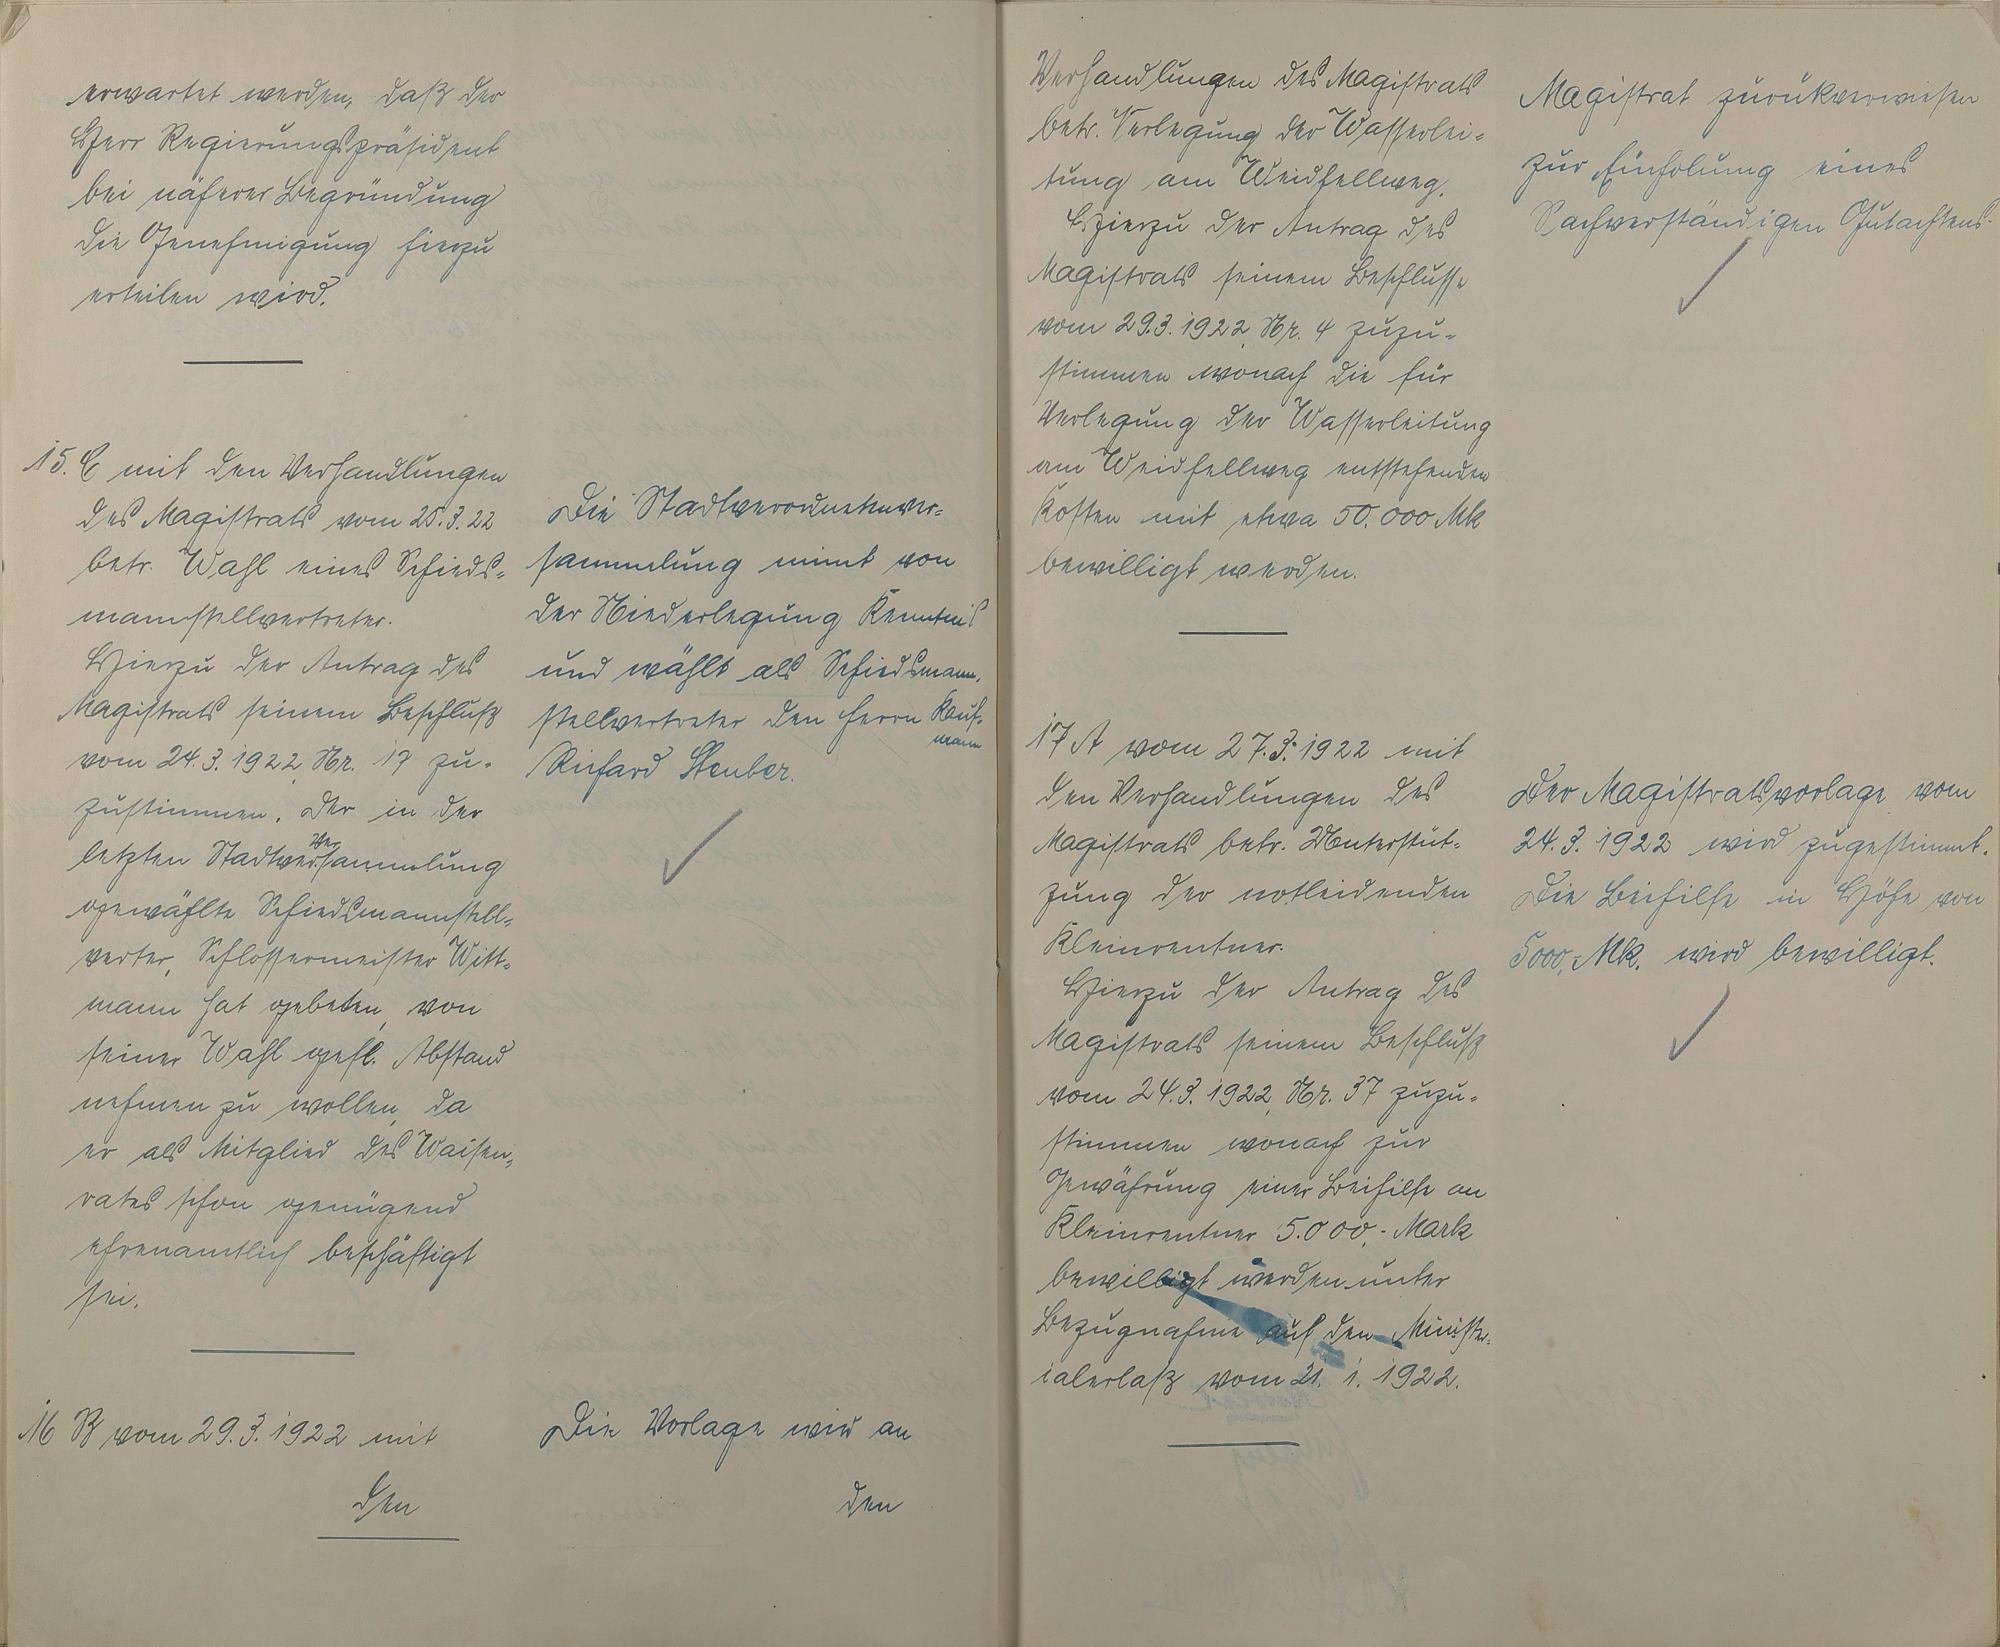 erwartet werden, daß der
Herr Regierungspräsident
bei näherer Begründung
die Genehmigung hierzu
erteilen wird.
15. C mit den Verhandlungen
des Magistrats vom 25.3.22
betr. Wahl eines Schieds-
mannstellvertreter.
Hierzu der Antrag des
Magistrats seinem Beschluß
vom 24.3.1922, Nr. 17 zu-
zustimmen. Der in der
letzten Stadtverversammlung
gewählte Schiedsmannstell-
verter, Schlossermeister Witt-
mann hat gebeten, von
seiner Wahl gefl. Abstand
nehmen zu wollen, da
er als Mitglied des Waisen-
rates schon genügend
ehrenamtlich beschäftigt
sei.
Die Stadtverordnetenver-
sammlung nimt von
der Niederlegung Kenntnis
und wählt als Schiedsmann-
stellvertreter den Herrn Kauf-
mann
Richard Steuber.
16 B vom 29.3.1922 mit
den
Die Vorlage wird an
den
Verhandlungen des Magistrats
betr. Verlegung der Wasserlei-
tung am Weidfellweg.
Hierzu der Antrag des
Magistrats seinem Beschlusse
vom 29.3.1922, Nr. 4 zuzu-
stimmen wonach die für
Verlegung der Wasserleitung
am Weidfellweg entstehenden
Kosten mit etwa 50.000 Mk
bewilligt werden.
Magistrat zurükverwiesen
zur Einholung eines
Sachverständigen Gutachtens.
17 A vom 27.3.1922 mit
den Verhandlungen des
Magistrats betr. Unterstüt-
zung der notleidenden
Kleinrentner.
Hierzu der Antrag des
Magistrats seinem Beschluß
vom 24.3.1922, Nr. 37 zuzu-
stimmen wonach zur
Gewährung einer Beihilfe an
Kleinrentner 5.000,- Mark
bewilligt werden unter
Bezugnahme auf den Minister-
ialerlaß vom 21. 1. 1922.
Der Magistratsvorlage vom
24.3.1922 wird zugestimmt.
Die Beihilfe in Höhe von
5000,- Mk. wird bewilligt.